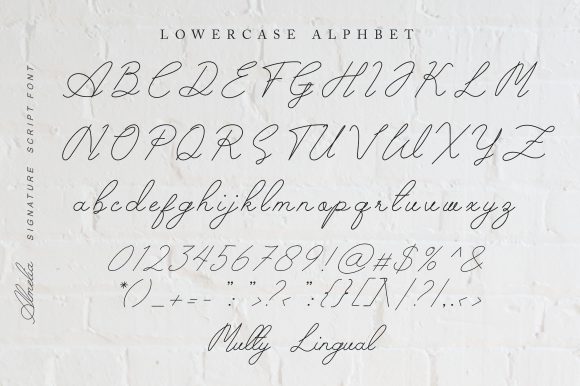 LOWERCASE ALPHBET
ABCDEFGHIJKLM
NOPQRSTUVWXYZ
abcdefghijklmnopqrstuvwxyz
0123456789!@#$%^&
*()_+=-":">?<":{}[]\|?|,.<>
Multy Lingual
Almelia SIGNATURE SCRIPT FONT